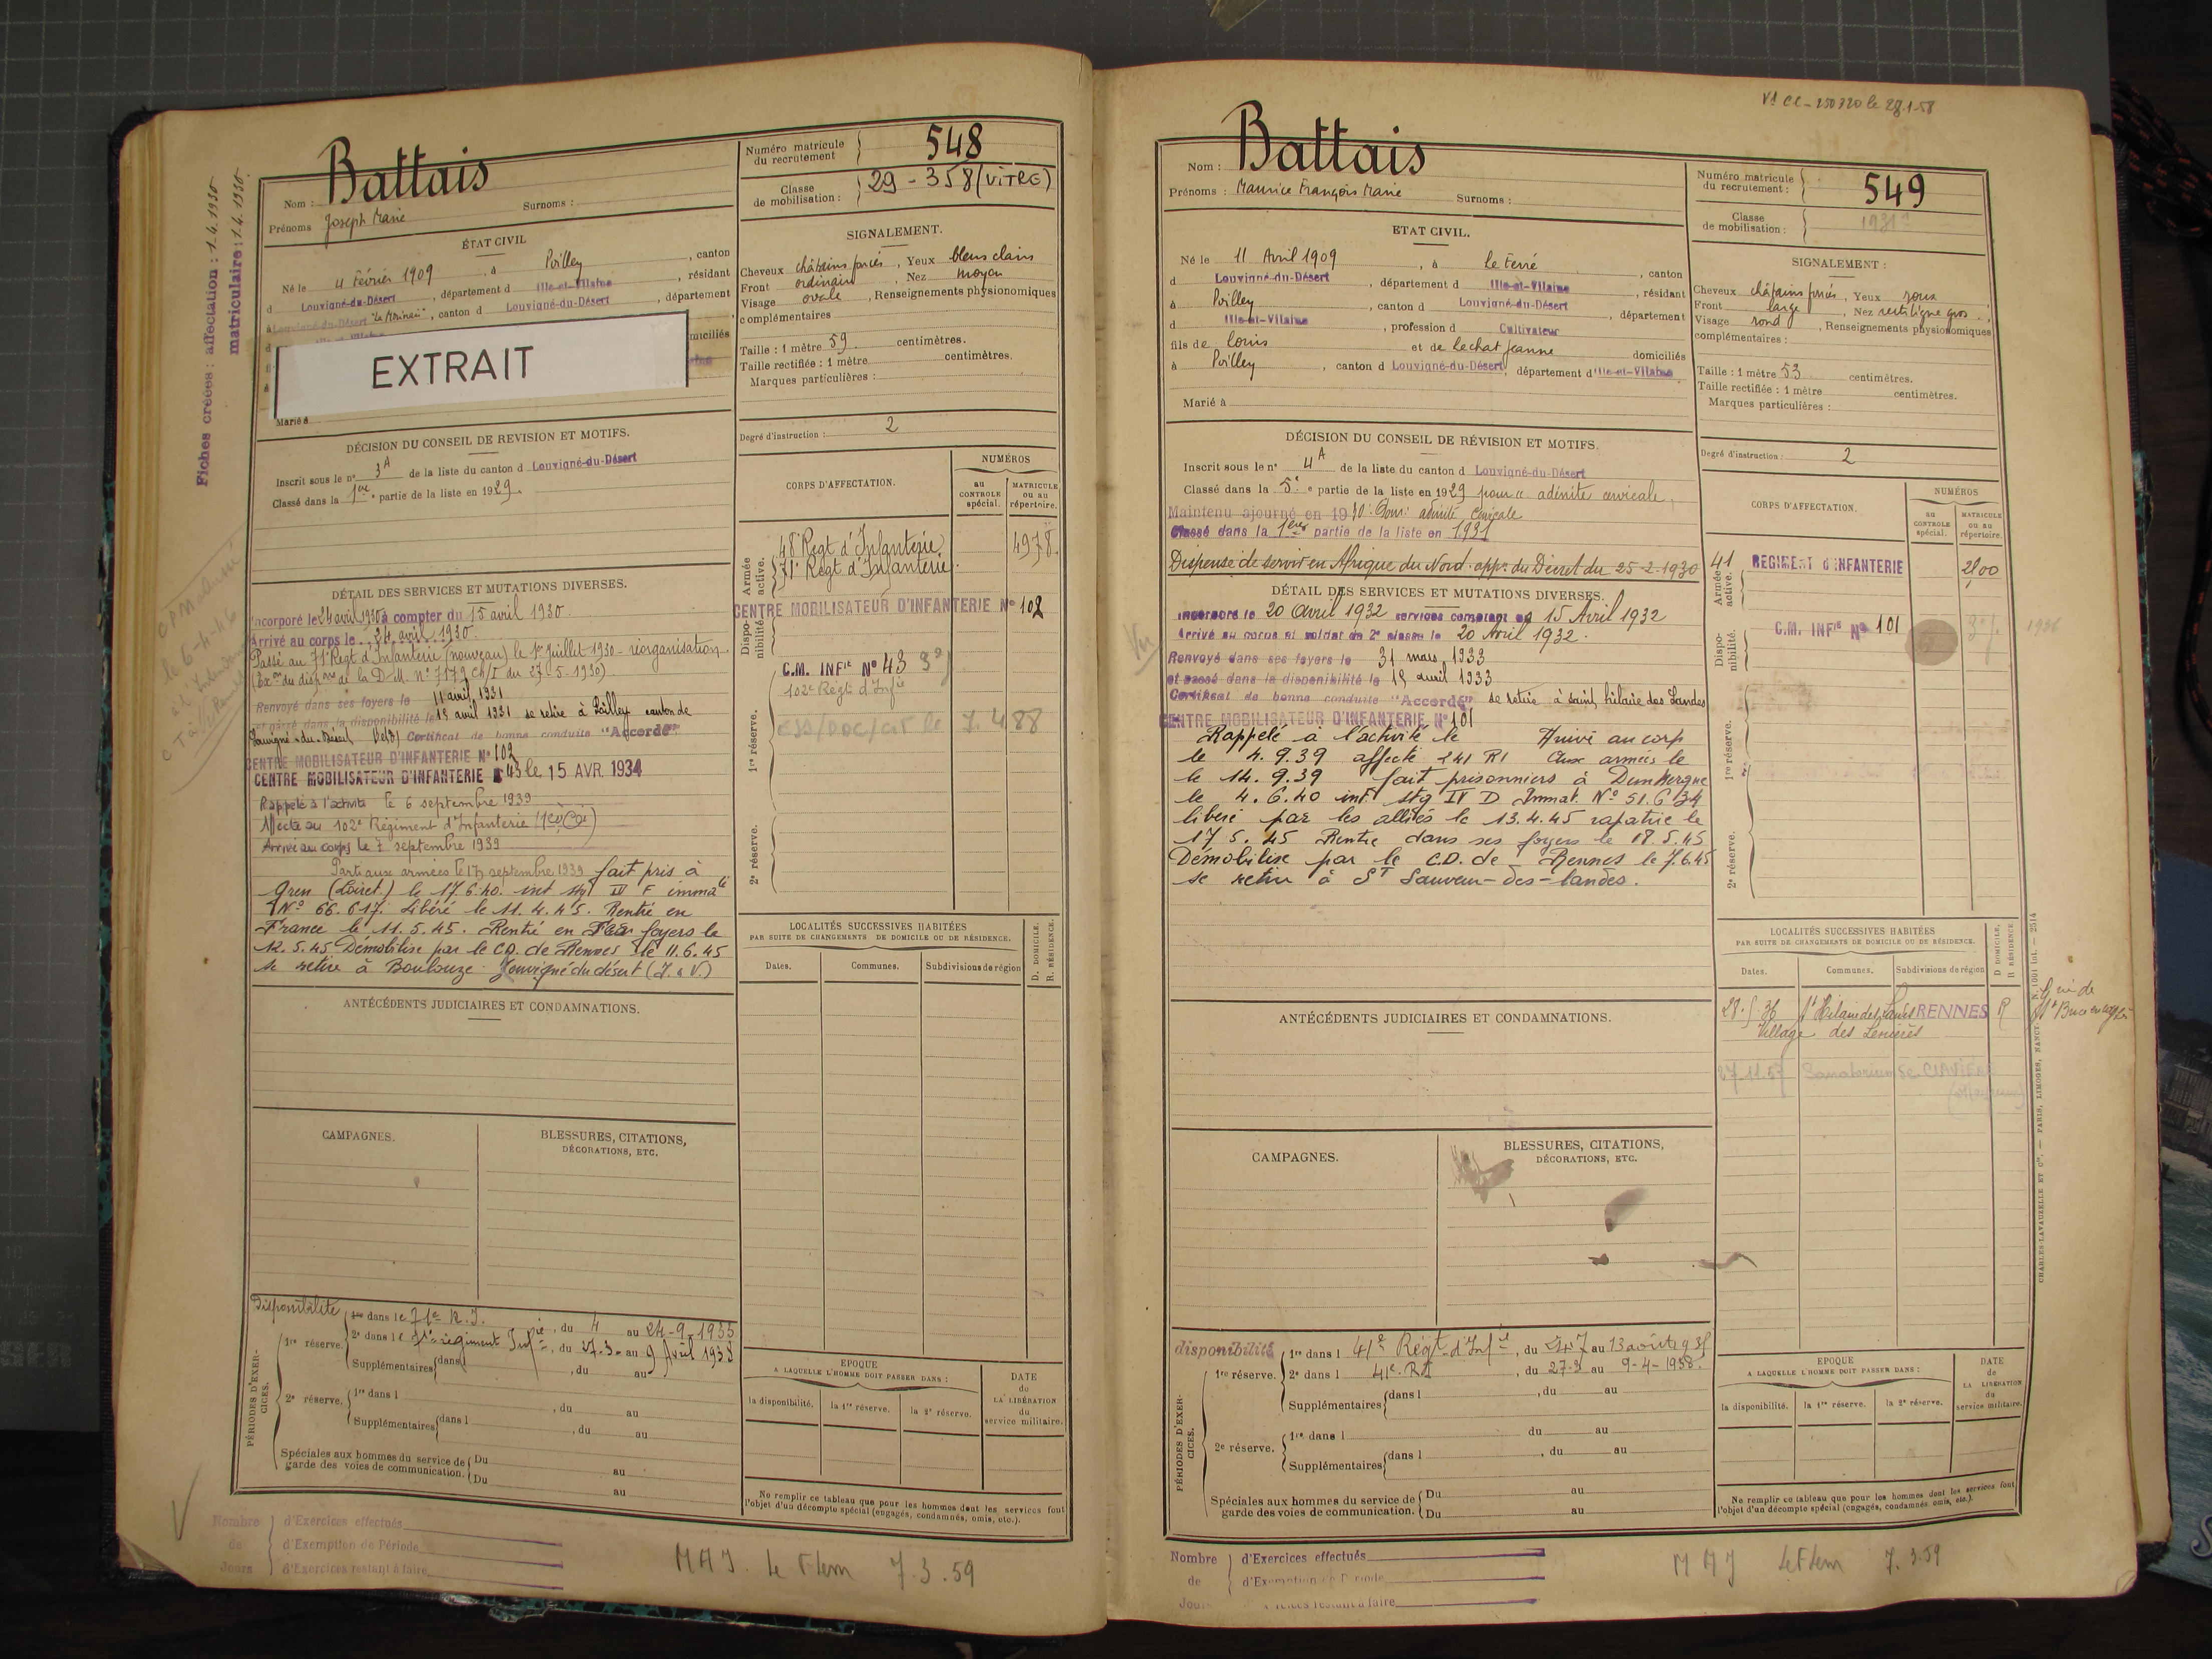 Battais
Nom :
Prénoms Joseph Marie Surnoms :
Numéro matricule du recrutement 548
Classe de mobilisation : 29 - 358 (VITRÉ)
Fiches créées : affectation : 1.4.1930
matriculaire : 1.4.1930
ÉTAT CIVIL
Né le 4 Février 1909, à Poilley, canton
d Louvigné-du-Désert, département d Ille-et-Vilaine, résidant
à canton d Louvigné-du-Désert, département
EXTRAIT
Marié à
SIGNALEMENT.
Cheveux châtains foncés, Yeux bleus clairs
Front ordinaire Nez moyen
Visage ovale, Renseignements physionomiques
complémentaires
Taille : 1 mètre 59 centimètres.
Taille rectifiée : 1 mètre centimètres.
Marques particulières :
Degré d'instruction : 2
DÉCISION DU CONSEIL DE REVISION ET MOTIFS.
Inscrit sous le n° 3A de la liste du canton d Louvigné-du-Désert
Classé dans la 1ère partie de la liste en 1929.
CORPS D'AFFECTATION.
NUMÉROS
au CONTROLE spécial.
MATRICULE ou au répertoire.
Armée active.
48e Regt d'Infanterie 4978.
71e Regt d'Infanterie.
CENTRE MOBILISATEUR D'INFANTERIE N° 102
Disponibilité.
C.M. INFie N° 43
102e Régt d'Infie
1re réserve.
2e réserve.
DÉTAIL DES SERVICES ET MUTATIONS DIVERSES.
Incorporé le 24 avril 1930 à compter du 15 avril 1930.
Arrivé au corps le 24 avril 1930.
Passé au 71e Regt d'Infanterie (nouveau) le 1er Juillet 1930 - réorganisation.
Renvoyé dans ses foyers le 11 avril 1931
et passé dans la disponibilité le 15 avril 1931 se retire à Poilley canton de
Louvigné-du-Désert Certificat de bonne conduite "Accordé"
CENTRE MOBILISATEUR D'INFANTERIE N° 102
CENTRE MOBILISATEUR D'INFANTERIE 43 le 15 AVR. 1934
Rappelé à l'activité le 6 septembre 1939
Affecté au 102e Régiment d'Infanterie
Arrivé au corps le 7 septembre 1939
Parti aux armées le 17 septembre 1939 fait pris à
Gien (Loiret) le 17.6.40. int stg IV F immat
N° 66.617. Libéré le 11.4.45. Rentré en
France le 11.5.45. Rentré en ses foyers le
12.5.45 Démobilisé par le CD. de Rennes le 11.6.45
se retire à Louvigné du désert (I. & V.)
LOCALITÉS SUCCESSIVES HABITÉES
PAR SUITE DE CHANGEMENTS DE DOMICILE OU DE RÉSIDENCE.
D. DOMICILE.
R. RÉSIDENCE
Dates. Communes. Subdivisions de région
ANTÉCÉDENTS JUDICIAIRES ET CONDAMNATIONS.
CAMPAGNES.
BLESSURES, CITATIONS,
DÉCORATIONS, ETC.
PÉRIODES D'EXERCICES.
Disponibilité
1re réserve. 1re dans le 71e R.I., du 4 au 24-9-1933
2e dans le régiment Infie, du 27-3- au 9 Avril 1938
Supplémentaires dans l , du au
2e réserve. 1re dans l , du au
Supplémentaires dans l , du au
Spéciales aux hommes du service de garde des voies de communication. Du au
Du au
EPOQUE
A LAQUELLE L'HOMME DOIT PASSER DANS :
la disponibilité. la 1re réserve. la 2e réserve.
DATE du LA LIBÉRATION du service militaire.
Ne remplir ce tableau que pour les hommes dont les services font
l'objet d'un décompte spécial (engagés, condamnés, omis, etc.).
Nombre de Jours
d'Exercices effectués
d'Exemption de Période
d'Exercices restant à faire
MAJ. Le Flem 7.3.59
Battais
Nom :
Prénoms : Maurice François Marie Surnoms :
Numéro matricule du recrutement : 549
Classe de mobilisation :
ETAT CIVIL.
Né le 11 Avril 1909, à le Ferré, canton
d Louvigné-du-Désert, département d Ille-et-Vilaine, résidant
à Poilley, canton d Louvigné-du-Désert, département
d Ille-et-Vilaine, profession d Cultivateur
fils de Louis et de Lechat Jeanne domiciliés
à Poilley, canton d Louvigné-du-Désert, département d'Ille-et-Vilaine
Marié à
SIGNALEMENT :
Cheveux châtains foncés, Yeux roux
Front large, Nez rectiligne gros.
Visage rond, Renseignements physionomiques
complémentaires :
Taille : 1 mètre 53 centimètres.
Taille rectifiée : 1 mètre centimètres.
Marques particulières :
Degré d'instruction : 2
DÉCISION DU CONSEIL DE RÉVISION ET MOTIFS.
Inscrit sous le n° 4A de la liste du canton d Louvigné-du-Désert
Classé dans la 5e partie de la liste en 1929 pour adénite cervicale.
Maintenu ajourné en 1930. Pour adénite cervicale
Classé dans la 1ère partie de la liste en 1931
Dispensé de servir en Afrique du Nord. appon du Décret du 25-2-1930
CORPS D'AFFECTATION.
NUMÉROS
au CONTROLE spécial.
MATRICULE ou au répertoire.
Armée active.
41 REGIMENT D'INFANTERIE 2100
Disponibilité.
C.M. INFie N° 101
1re réserve.
2e réserve.
DÉTAIL DES SERVICES ET MUTATIONS DIVERSES.
Incorporé le 20 avril 1932 services comptant du 15 Avril 1932
Arrivé au corps et soldat de 2e classe le 20 Avril 1932.
Renvoyé dans ses foyers le 31 mars 1933
et passé dans la disponibilité le 15 avril 1933
Certificat de bonne conduite "Accordé" se retire à Saint hilaire des Landes
CENTRE MOBILISATEUR D'INFANTERIE N° 101
Rappelé à l'activité le Arrivé au corp
le 4.9.39 affecté 241 RI Aux armées le
le 14.9.39 fait prisonniers à Dunkerque
le 4.6.40 int. stg IV D Immat. N° 51.634
libéré par les alliés le 13.4.45 rapatrié le
17.5.45 Rentré dans ses foyers le 18.5.45
Démobilisé par le C.D. de Rennes le 7.6.45
se retire à St Sauveur-des-landes.
LOCALITÉS SUCCESSIVES HABITÉES
PAR SUITE DE CHANGEMENTS DE DOMICILE OU DE RÉSIDENCE.
D DOMICILE.
R RÉSIDENCE
Dates. Communes. Subdivisions de région
St Hilaire des Landes RENNES R
Village des
27.11.57 Sanatorium de
ANTÉCÉDENTS JUDICIAIRES ET CONDAMNATIONS.
CAMPAGNES.
BLESSURES, CITATIONS,
DÉCORATIONS, ETC.
PÉRIODES D'EXERCICES.
disponibilité
1re réserve. 1re dans l 41e Régt d'Infie, du 24-7 au 13 août 1935
2e dans l 41e RI, du 27-3 au 9-4-1938.
Supplémentaires dans l , du au
2e réserve. 1re dans l du au
Supplémentaires dans l , du au
Spéciales aux hommes du service de garde des voies de communication. Du au
Du au
EPOQUE
A LAQUELLE L'HOMME DOIT PASSER DANS :
la disponibilité. la 1re réserve. la 2e réserve.
DATE de LA LIBÉRATION du service militaire.
Ne remplir ce tableau que pour les hommes dont les services font
l'objet d'un décompte spécial (engagés, condamnés, omis, etc.).
CHARLES-LAVAUZELLE ET Cie. — PARIS, LIMOGES, NANCY.
Nombre de Jours
d'Exercices effectués
d'Exemption de Période
d'Exercices restant à faire
MAJ Le Flem 7.3.59